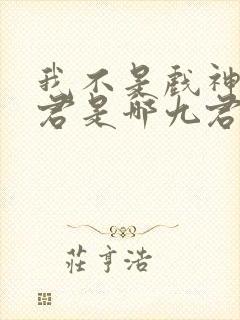 我不是戲神
君是哪九君
莊亨浩